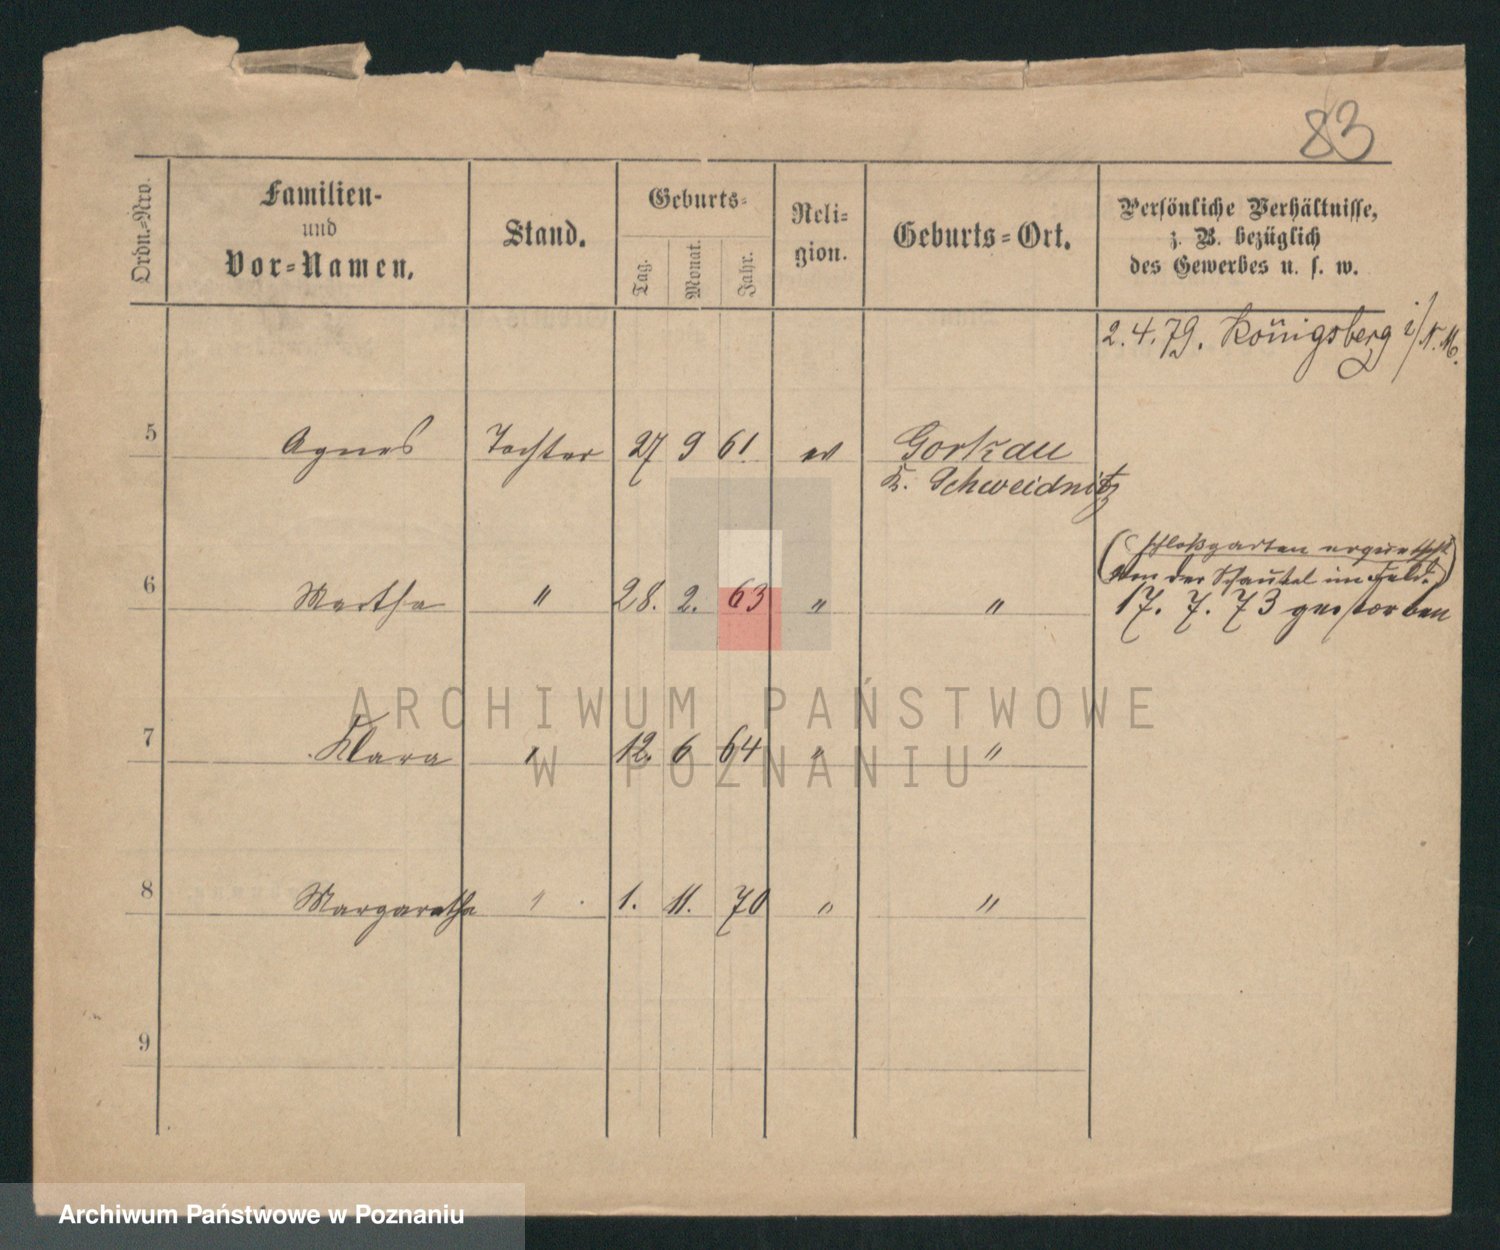 83
Ordn.=Nro.
Familien-
und
Vor=Namen.
Stand.
Geburts=
Tag.
Monat.
Jahr.
Reli=
gion.
Geburts=Ort.
Persönliche Verhältnisse,
z. B. bezüglich
des Gewerbes u. s. w.
2.4.79. Königsberg i/N.M.
5 Agnes Tochter 27 9 61. ev Gorkau
K. Schweidnitz
(Schloßgarten
von der Schaukel im
6 Martha " 28. 2. 63 " " 17. 7. 73 gestorben
7 Klara " 12. 6 64 " "
8 Margaretha " 1. 11. 70 " "
9
ARCHIWUM PAŃSTWOWE
W POZNANIU
Archiwum Państwowe w Poznaniu